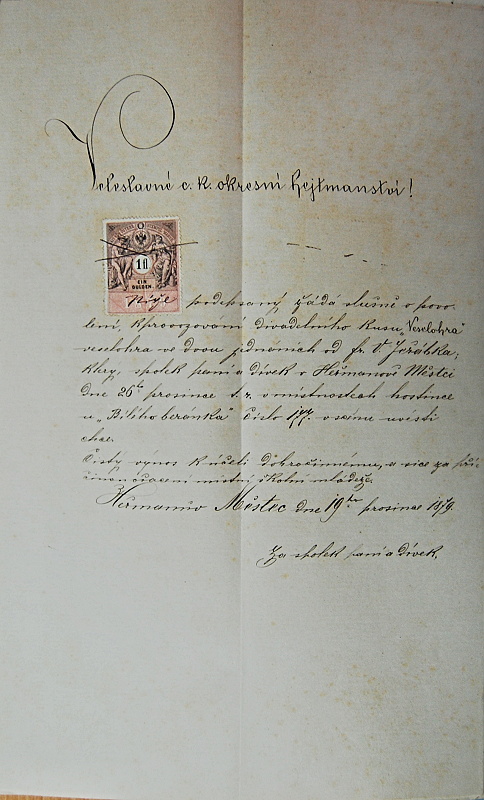 Veleslavné c. k. okresní hejtmanství!
1 fl
EIN GULDEN
Níže podepsaný žádá slušně o povo-
lení, k provozování divadelního kusu „Veselohra"
veselohra ve dvou jednáních od fr. V Jeřábka,
který, spolek paní a dívek v Heřmanově Městci
dne 26ho prosince t. r. v místnostech hostince
u „Bílého beránka" číslo 177. v scénu uvésti
chce.
Čistý výnos k účeli dobročinnému, a sice za
místní školní mládeže.
Heřmanův Městec dne 19ho prosince 1879.
Za spolek paní a dívek.